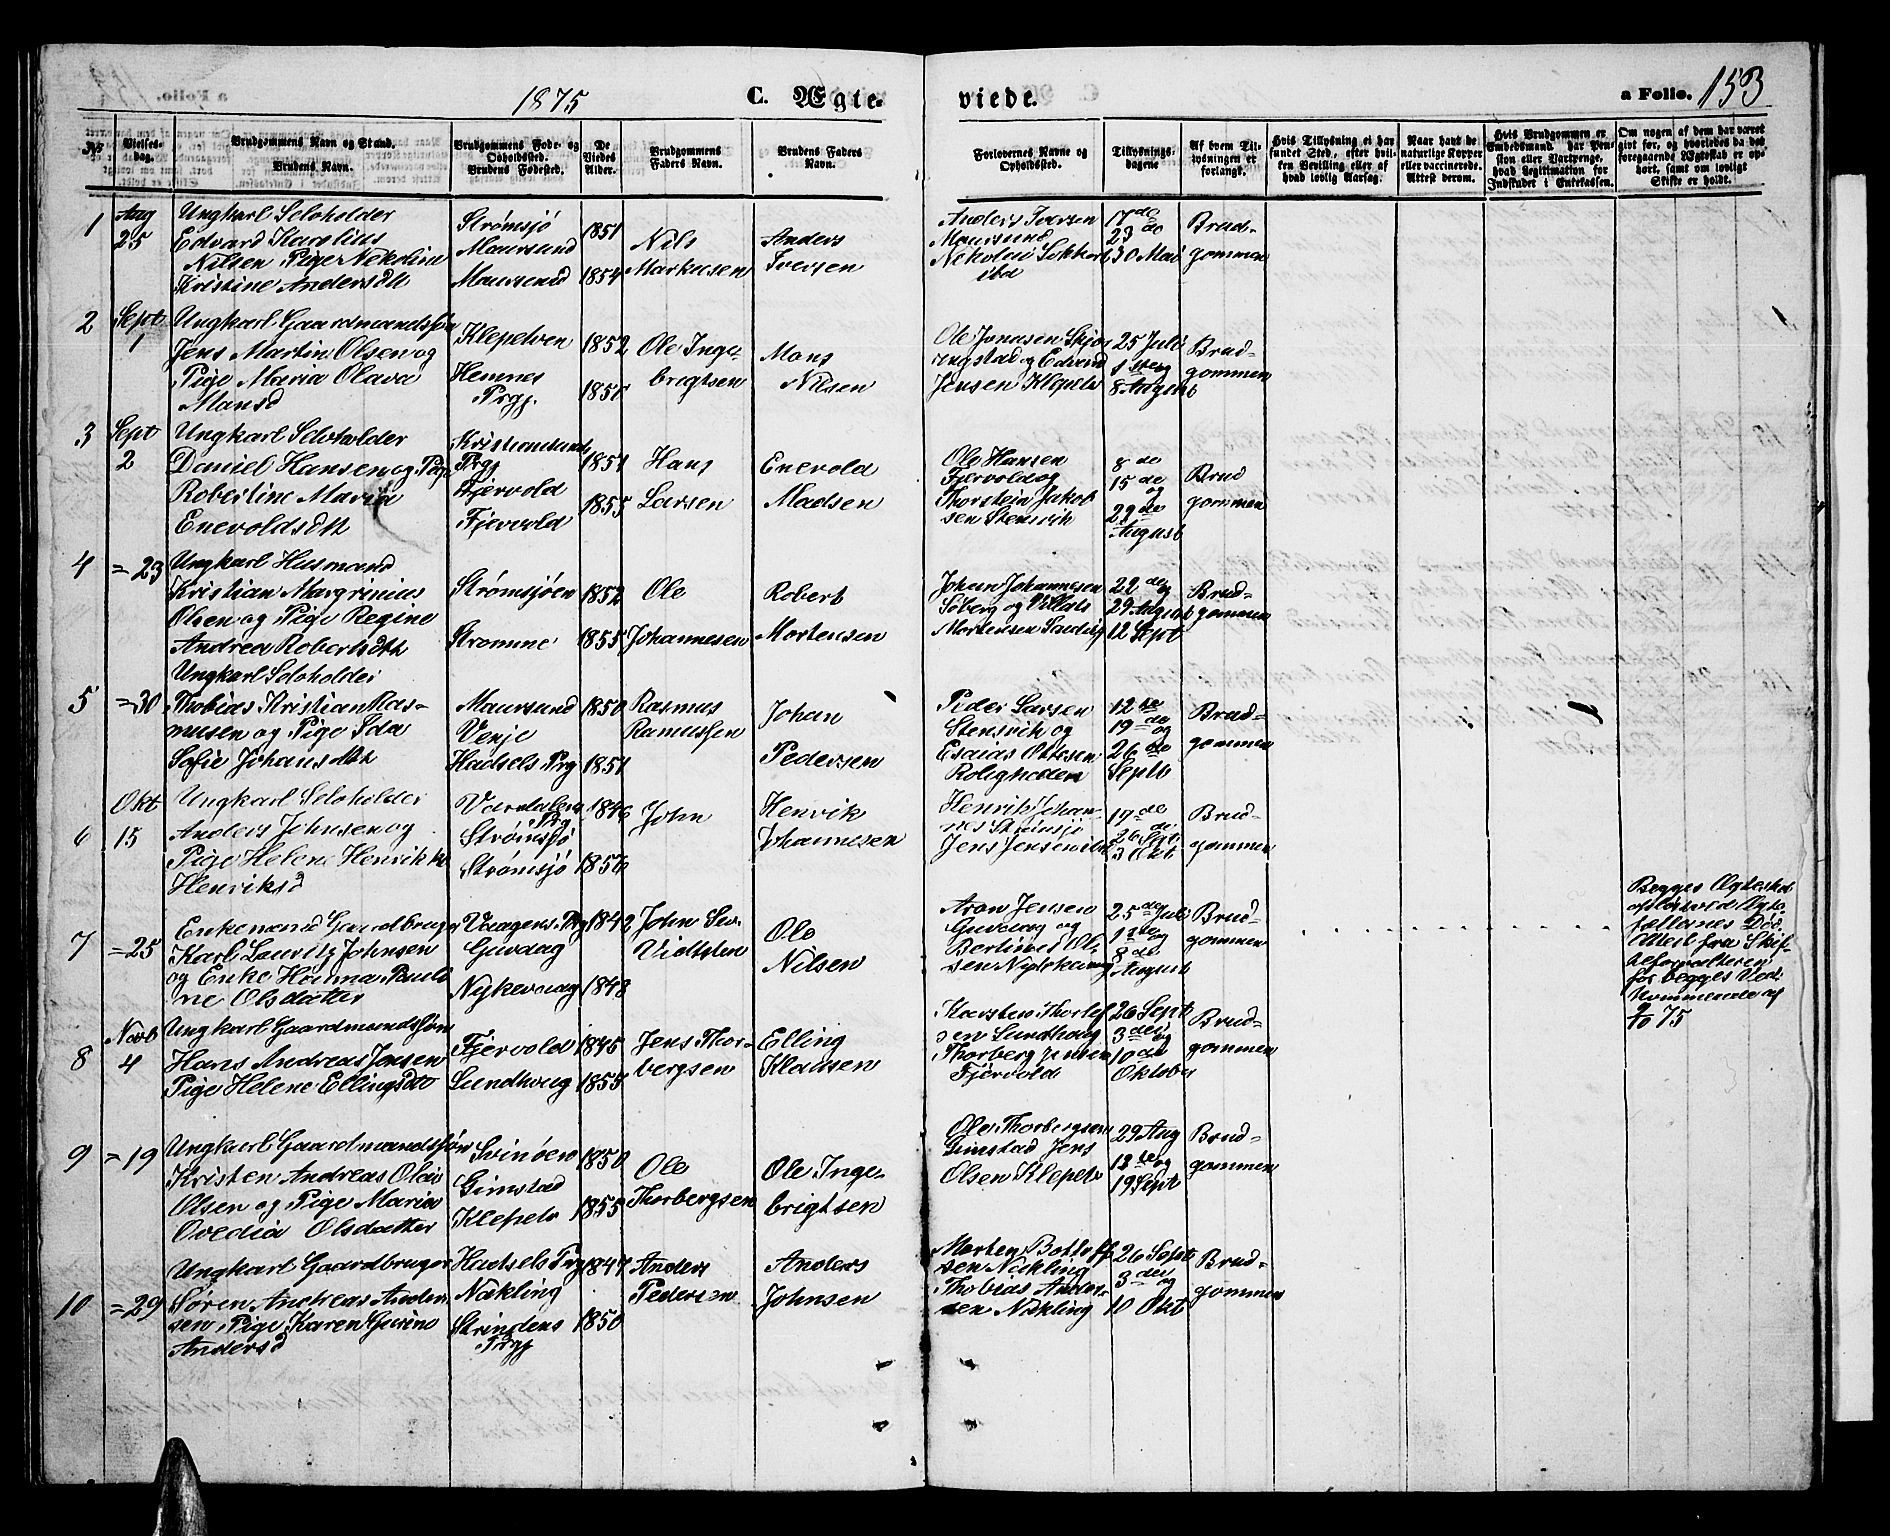 1875 C. Ægteviede. a Folio. 153
№
Vielses-
dag.
Brudgommens Navn og Stand.
Brudens Navn.
Brudgommens Føde- og
Opholdssted.
Brudens Fødested.
De
Viedes
Alder.
Brudgommens
Faders Navn.
Brudens Faders
Navn.
Forlovernes Navne og
Opholdssted.
Tillysnings-
dagene
Af hvem Til-
lysningen er
forlangt.
Hvis Tillysning ei har
fundet Sted, efter hvil-
ken Bevilling eller af
hvad lovlig Aarsag.
Naar havt de
naturlige Kopper
eller vaccinerede.
Attest derom.
Hvis Brudgommen er
Embedsmand har Pen-
sion eller Vartpenge,
hvad Legitimation for
Indskudet i Enkekassen.
Om nogen af dem har været
givt før, og hvorledes da det
foregaaende Ægteskab er op-
hørt, samt om lovligt
Skifte er holdt.
1
Aug
25
Ungkarl Selvholder
Edvard Karelius
Nilsen Pige Nekoline
Kristine Andersdtt
Strømsjø
Maursund
Maursund
1851
1854
Nils
Markusen
Anders
Iversen
Anders Iversen
Maursund
Nikolai
ibd
17de
23de
30 Mai
Brud-
gommen
2
Sept
1
Ungkarl Gaardmandssøn
Jens Martin Olsen og
Pige Maria Olava
Mansd
Klepelven
Hemnes
Prgj.
1852
1850
Ole Inge-
brigtsen
Mons
Nilsen
Ole Jonasen Skjo-
ringstad og Edvard
Jensen Klepelv
25 Juli
1ste og
8 August
Brud-
gommen
3
Sept
2
Ungkarl Selvholder
Daniel Hansen og Pige
Robertine Maria
Enevoldsdtt
Kristiansund
Prgj
Fjervold
Fjervold
1851
1855
Hans
Larsen
Enevold
Madsen
Ole Hansen
Fjervold og
Thorstein Jakob
sen Stensvik
8de
15de
og
22de
August
Brud
gommen
4
= 23
Ungkarl Husmand
Kristian Margrinius
Olsen og Pige Regine
Andrea Robertsdtt
Strømsjøen
Strømme
1852
1855
Ole
Johannesen
Robert
Mortensen
Johan Johannesen
Søberg og
Mortensen
22de og
29 August
12 Sept
Brud-
gommen
5
= 30
Ungkarl Selvholder
Thobias Kristian Ras-
musen og Pige Ida
Sofie Johansdtt
Maursund
Venje
Hadsels Prg
1850
1851
Rasmus
Ramussen
Johan
Pedersen
Peder Larsen
Stensvik og
Esaias Ottesen
Roligheden
12te
19de og
26de
Septb
Brud-
gommen
6
Okt
15
Ungkarl Selvholder
Anders Johnsen og
Pige Helene Henrik
Henriksd
Prg
Strømsjø
Strømsjø
1846
1856
John
Henrik
Johannesen
Henrik Johan-
nes Strømsjø
Jens Jensen ibd
19de
26 Sept
3 Okt
Brud-
gommen
7
= 25
Enkemand Gaardbruger
Karl Lauritz Johnsen
og Enke Hanna Pauli-
ne Olsdatter
Vaagens Prg
Guvaag
Nykvaag
1842
1848
John
Ole
Nilsen
Aron Jensen
Guvaag og
Bertinus Ol-
sen Nykvaag
25de Juli
1ste og
8de
August
Brud-
gommen
Begges Ægteskab
opløst ved Ægte-
fællenes Død.
Attest fra Skif-
teforvalteren
for begges Ved-
kommende af
9/10 75
8
Novb
4
Ungkarl Gaardmandssøn
Hans Andreas Jensen
Pige Helene Ellingsdtt
Fjervold
Lundhaug
1845
1855
Jens Thor-
bergsen
Elling
Klausen
Karsten Thorlef
sen Lundhaug
Thorberg Jensen
Fjervold
26 Sept
3die og
10de
Oktober
Brud-
gommen
9
= 19
Ungkarl Gaardmandssøn
Kristen Andreas Olai
Olsen og Pige Maria
Ovedia Olsdatter
Svinøen
Gimstad
Klepelv
1850
1855
Ole
Thorbergsen
Ole Inge-
brigtsen
Ole Thorbergsen
Gimstad Jens
Olsen Klepelv
29 Aug
12te og
19 Sept
Brud-
gommen
10
= 29
Ungkarl Gaardbruger
Søren Andreas Ander
sen, Pige Karen Gurine
Andersd
Hadsels Prg
Nækling
Strindens
Prgj
1847
1850
Anders
Pedersen
Anders
Johnsen
Morten Bottolf
sen Nækling
Thobias Ander-
sen Nækling
26 Sept
3die og
10 Okt
Brud-
gommen